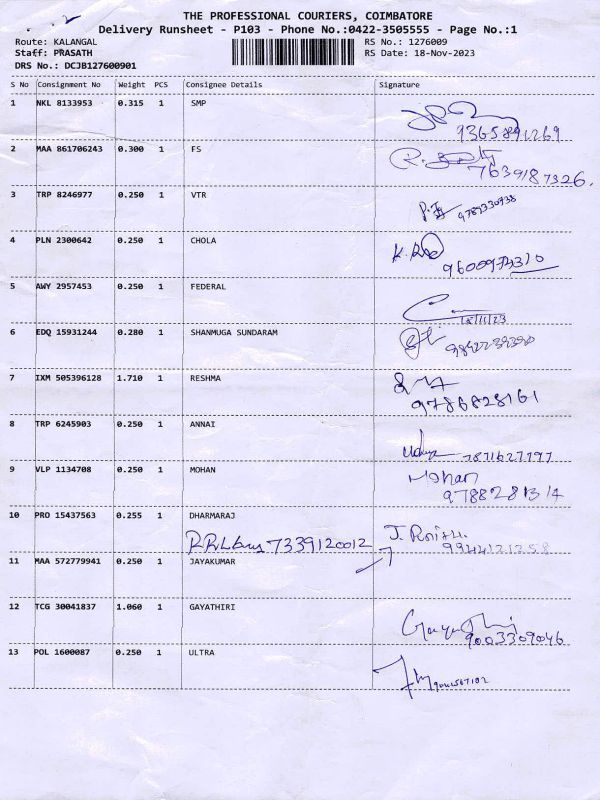 THE PROFESSIONAL COURIERS, COIMBATORE
Delivery Runsheet - P103 - Phone No.:0422-3505555 - Page No.:1
Route: KALANGAL RS No.: 1276009
Staff: PRASATH RS Date: 18-Nov-2023
DRS No.: DCJB127600901
S No Consignment No Weight PCS Consignee Details Signature
1 NKL 8133953 0.315 1 SMP
9365891269
2 MAA 861706243 0.300 1 FS
7639187326.
3 TRP 8246977 0.250 1 VTR
4 PLN 2300642 0.250 1 CHOLA
9600973310
5 AWY 2957453 0.250 1 FEDERAL
18/11/23
6 EDQ 15931244 0.280 1 SHANMUGA SUNDARAM
7 IXM 505396128 1.710 1 RESHMA
9786828161
8 TRP 6245903 0.250 1 ANNAI
7871627797
9 VLP 1134708 0.250 1 MOHAN Mohan
9788281314
10 PRO 15437563 0.255 1 DHARMARAJ
7339120012
9944121258
11 MAA 572779941 0.250 1 JAYAKUMAR
12 TCG 30041837 1.060 1 GAYATHIRI
9003309046
13 POL 1600087 0.250 1 ULTRA